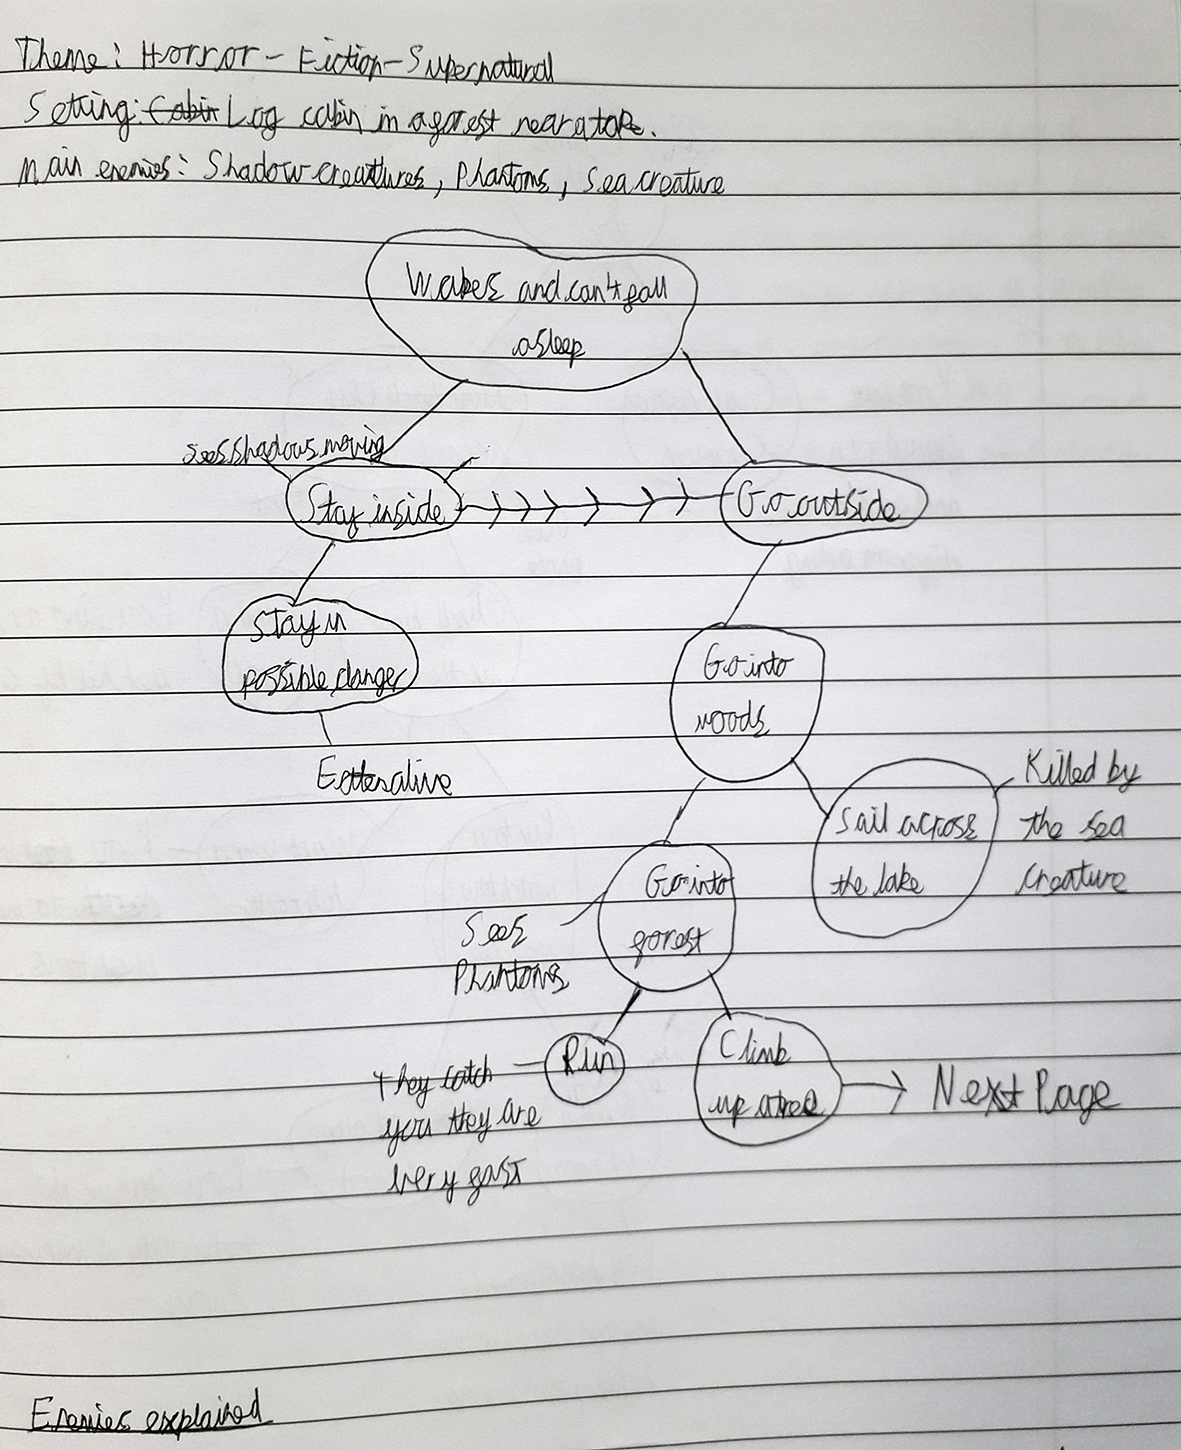 Theme: Horror - Fiction-Supernatural
Setting: Cabin Log cabin in a forest near a
Main enemies: Shadow creatures, Phantoms, Sea creature
Wakes and can't fall
asleep
sees shadows moving
Stay inside
Go outside
Stay in
possible danger
Eatten alive
Go into
woods
Sail across
the lake
Killed by
the sea
creature
Go into
forest
Sees
Phantoms
Run
they catch
you they are
very fast
Climb
up a tree
Next Page
Enemies explained